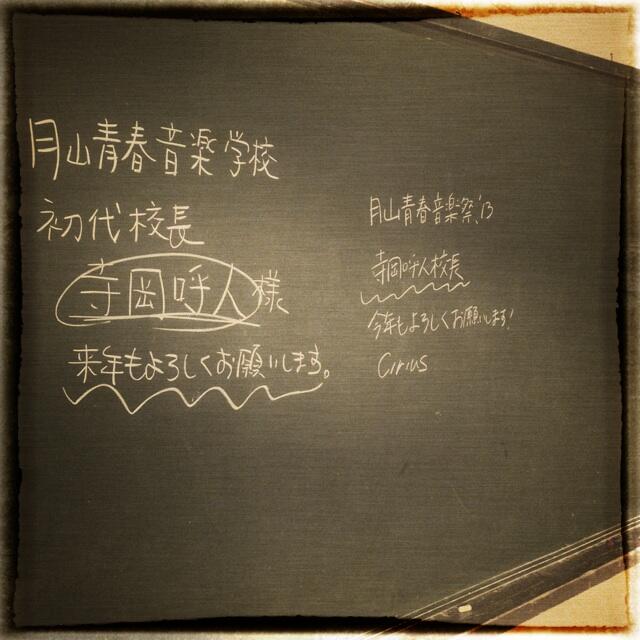 月山青春音楽学校
初代校長
寺岡呼人様
来年もよろしくお願いします。
月山青春音楽祭'13
寺岡呼人校長
今年もよろしくお願いします!
Cirius